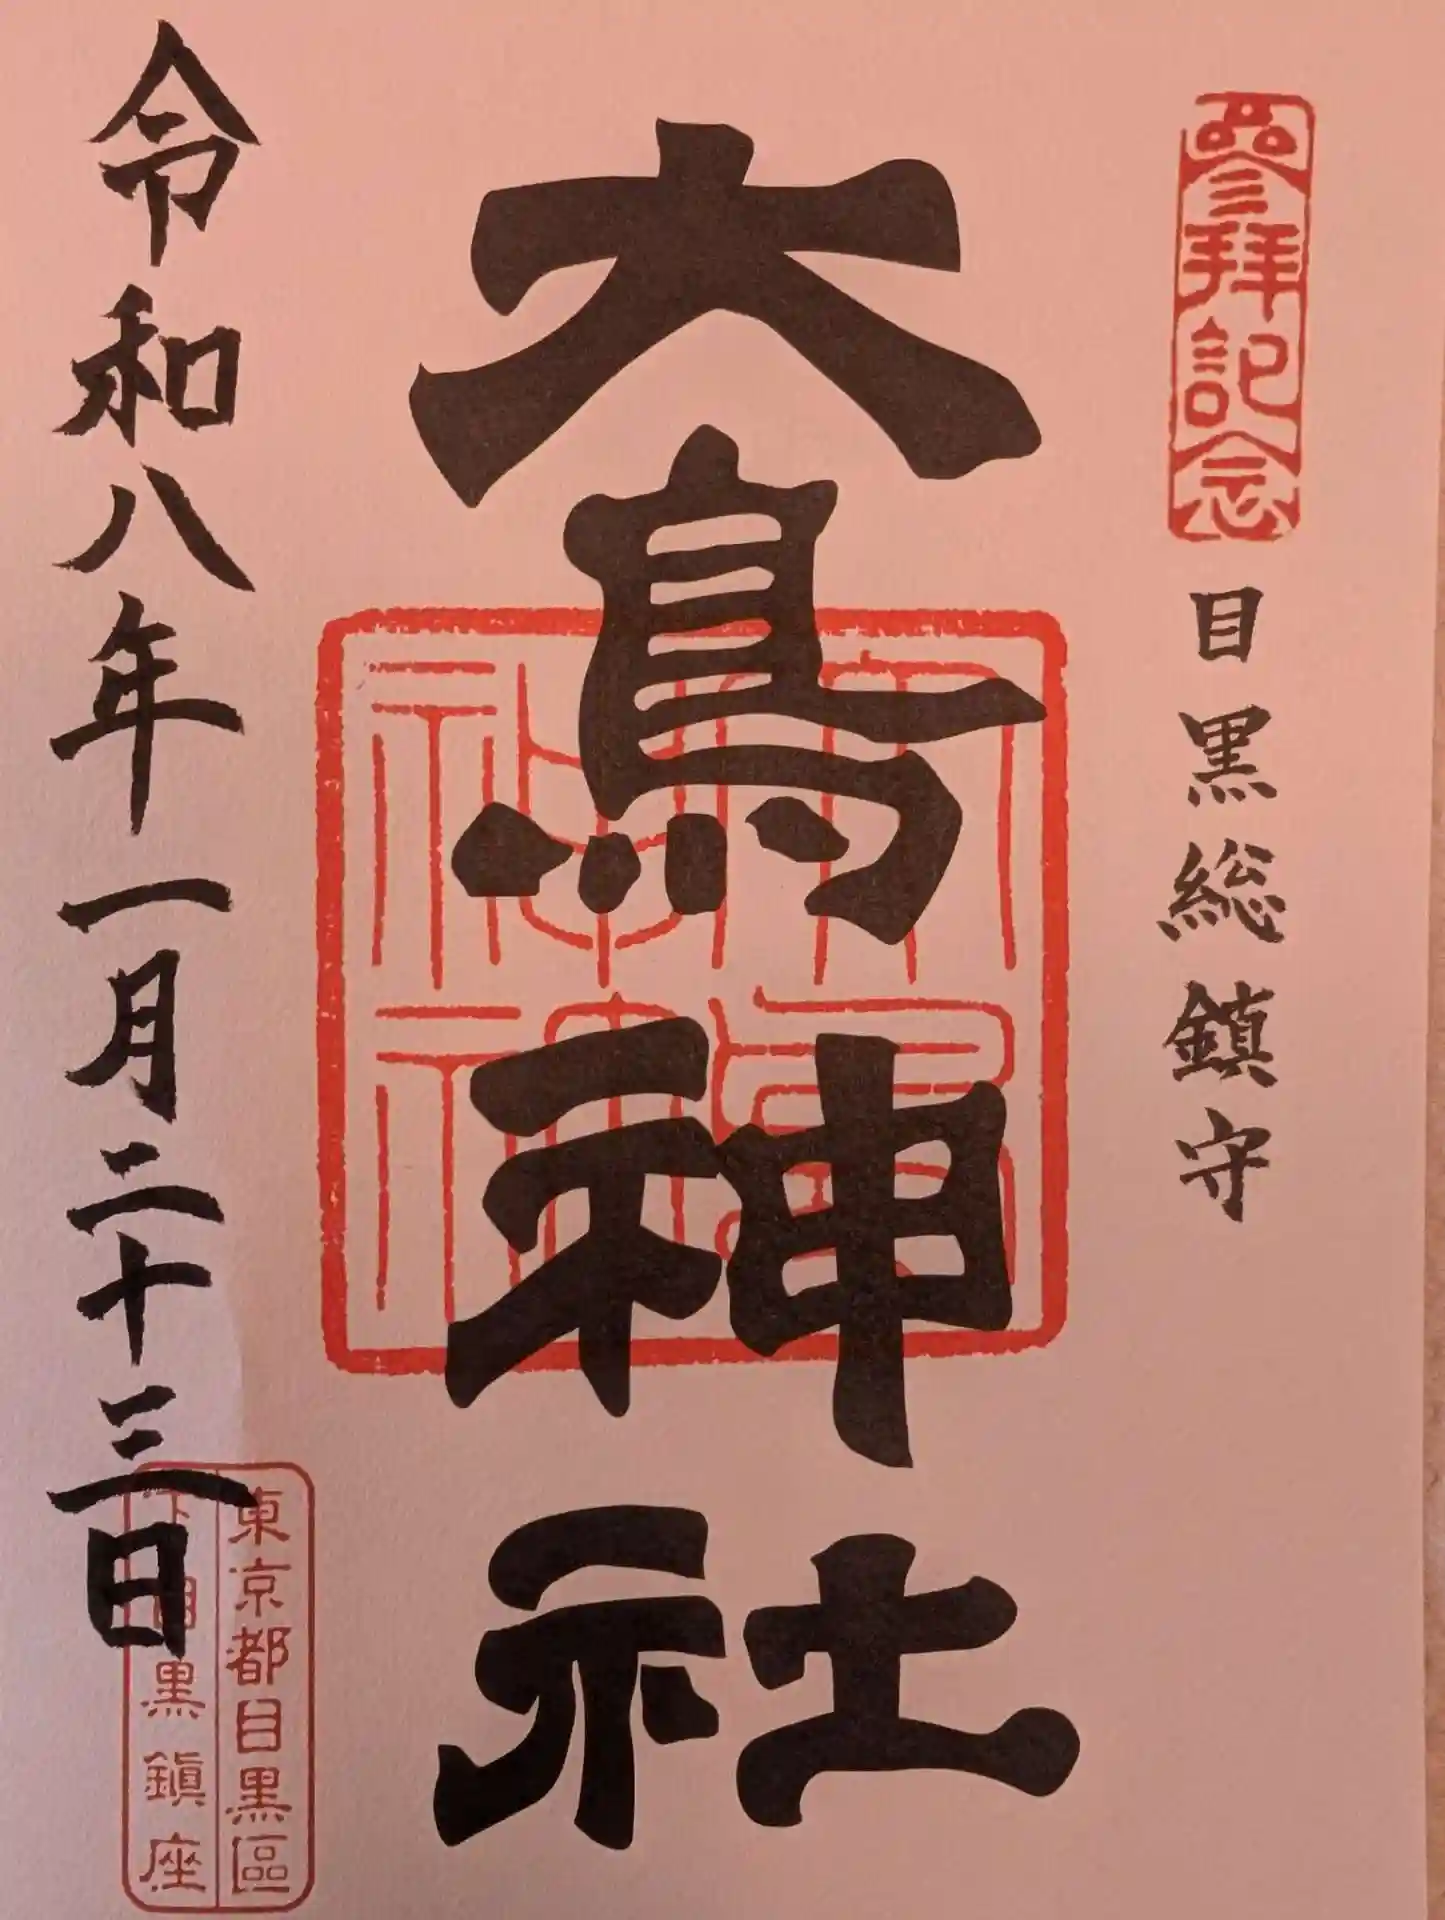 参拝記念
目黒総鎮守
大鳥神社
令和八年一月二十三日
東京都目黒區
下目黒鎮座